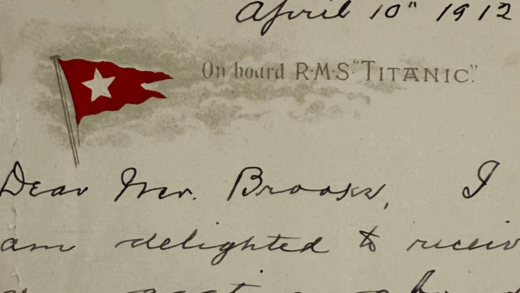 April 10" 1912
On board R·M·S "TITANIC".
Dear Mr. Brooks, I
am delighted to receiv